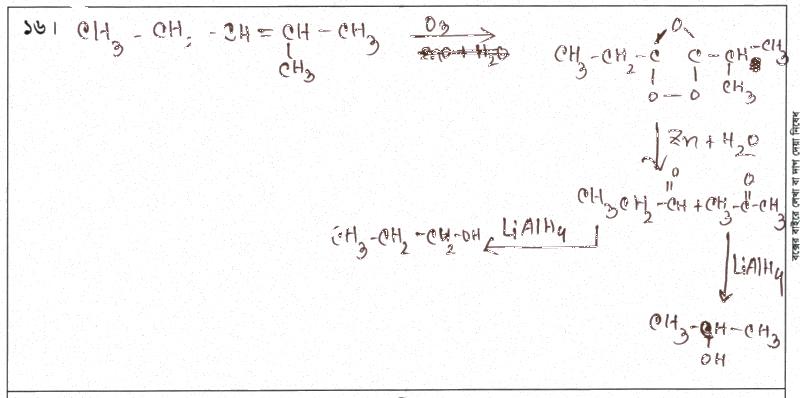 ১৬। CH3 - CH2 - CH = CH - CH3
CH3
O3
CH3 - CH2 - C C - CH - CH3
O
O - O CH3
Zn + H2O
CH3 CH2 - CH + CH3 - C - CH3
O O
LiAlH4
CH3 - CH2 - CH2 - OH
LiAlH4
CH3 - CH - CH3
OH
বক্সের বাইরে লেখা বা দাগ দেয়া নিষেধ